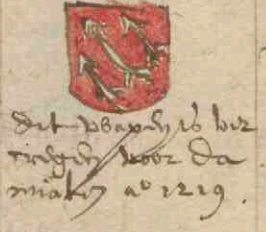 dit wapen is ver
cregen voor da
miaten aº 1219.